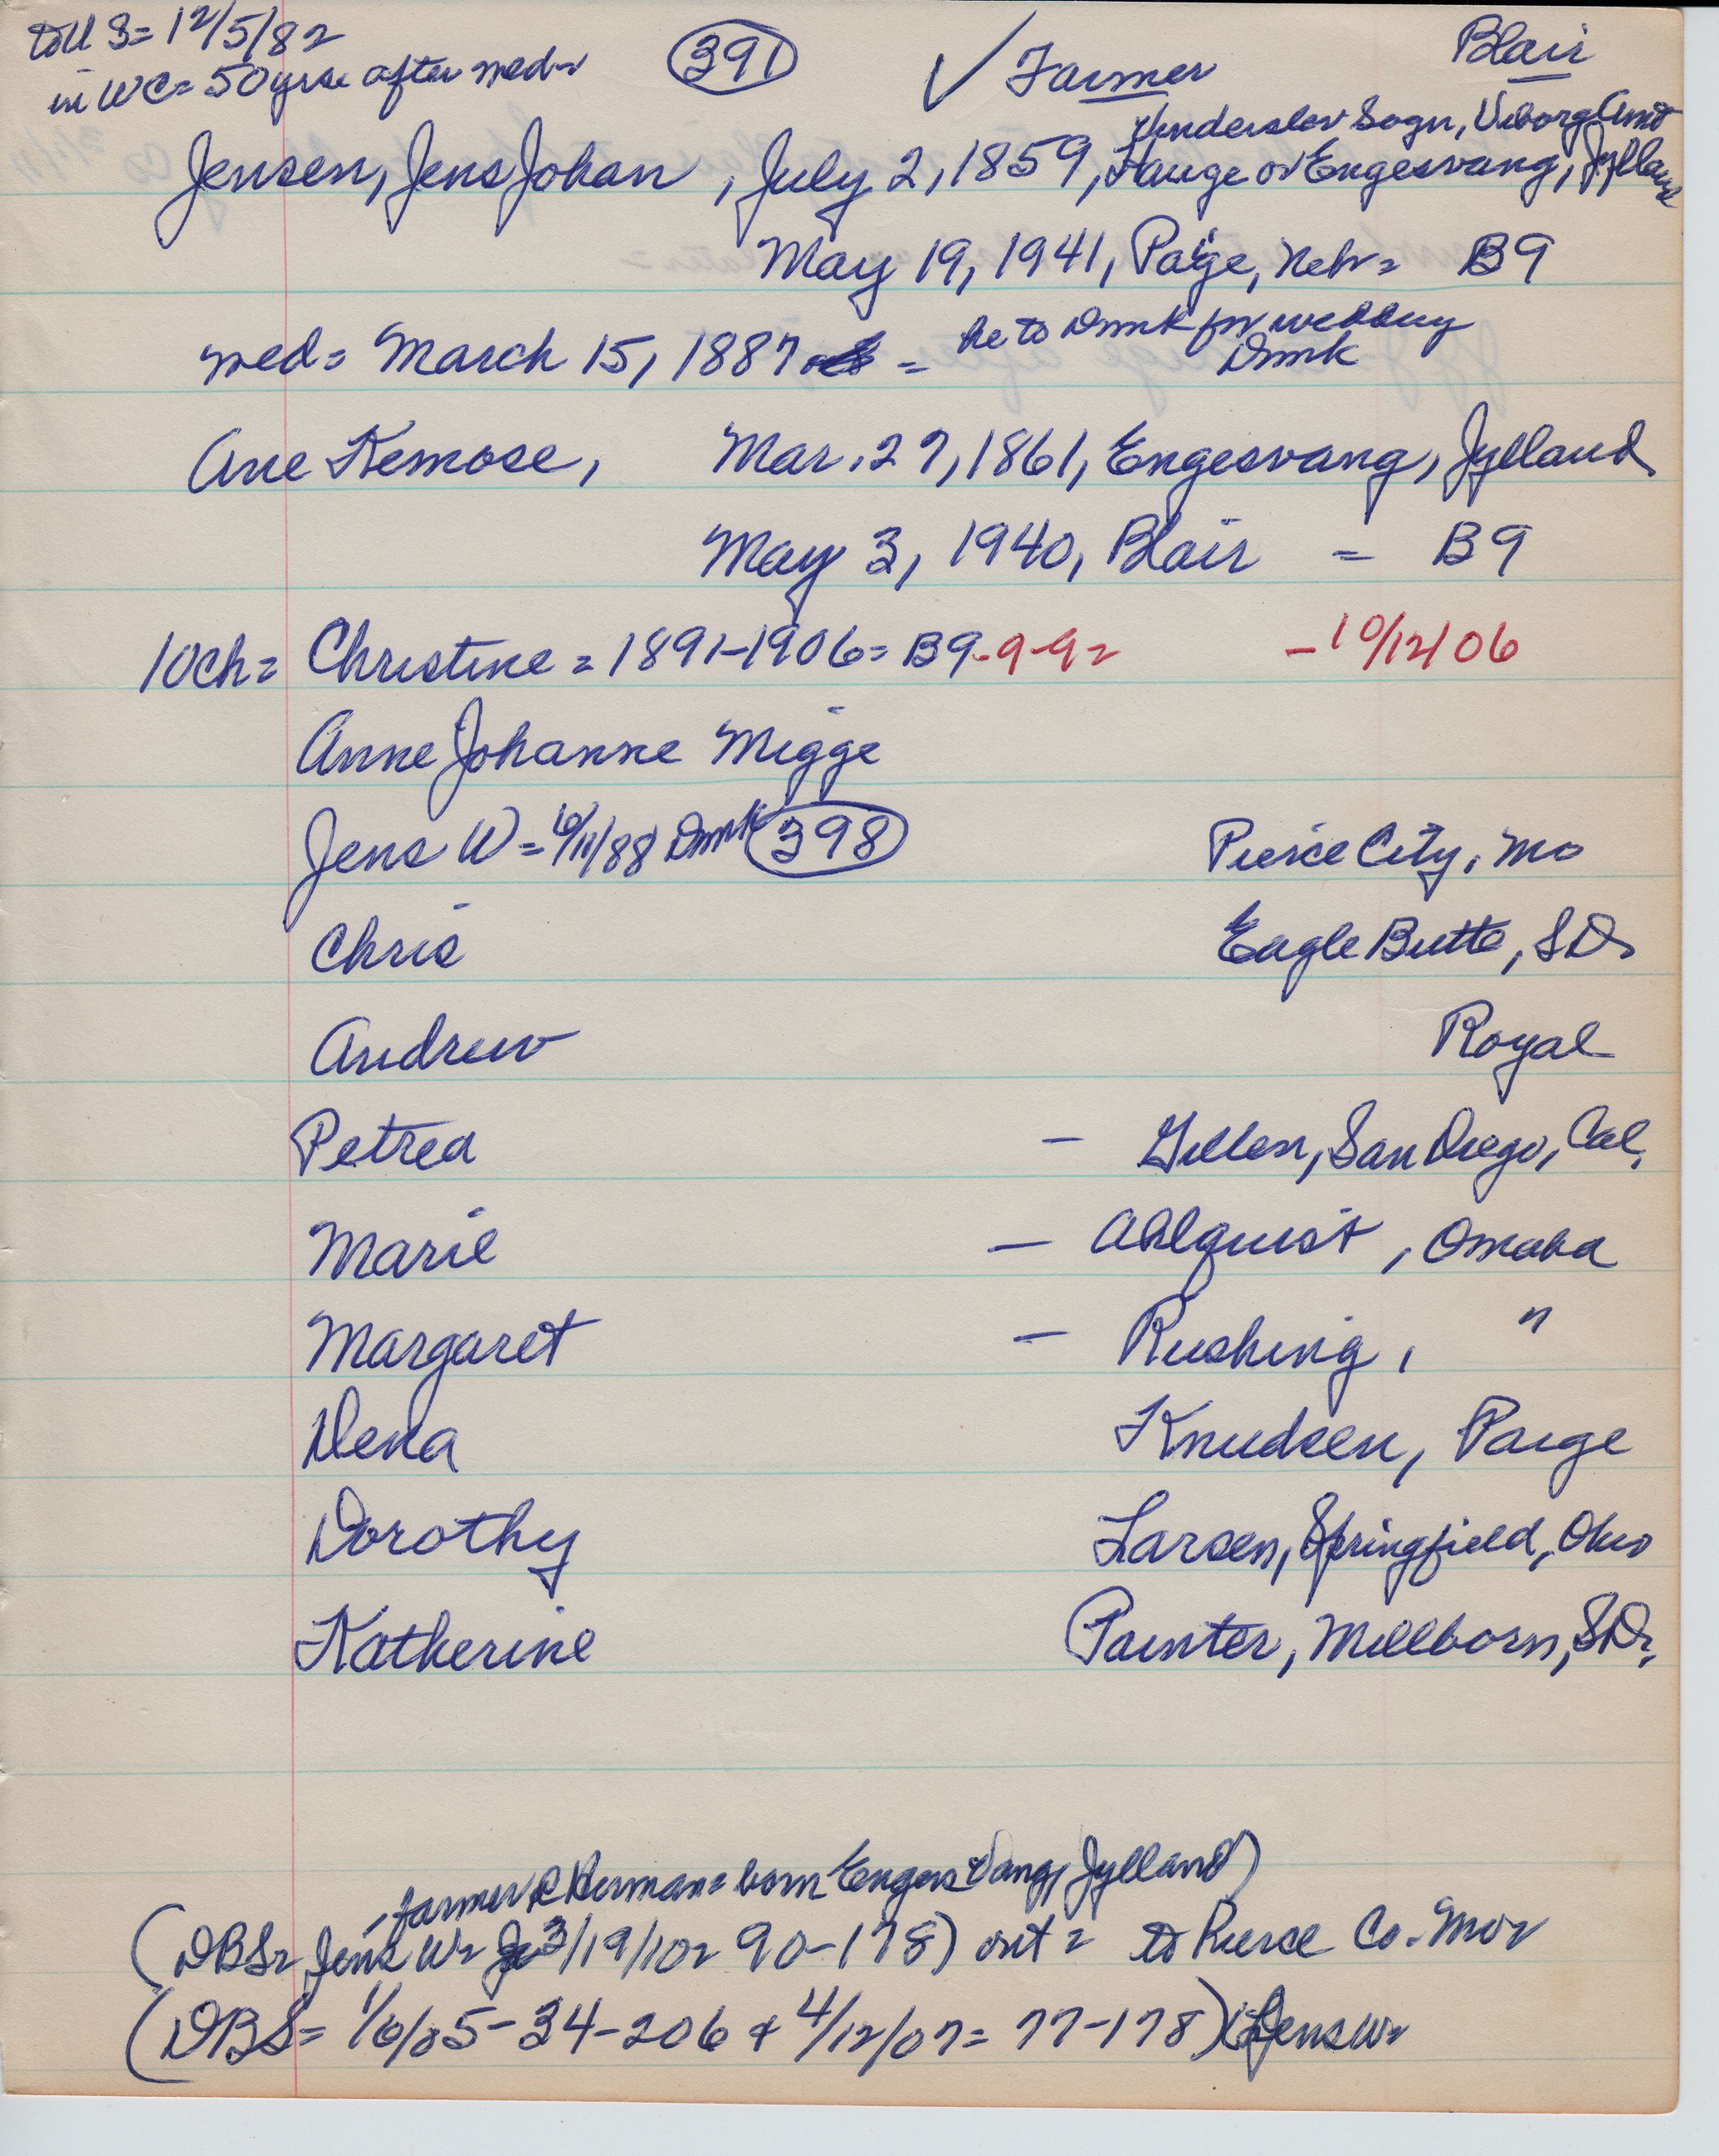 to U S= 12/5/82
in WC= 50 yrs after wed=
391
✓ Farmer
Blair
Vinderslev Sogn, Viborg Amt
Jensen, Jens Johan , July 2, 1859, Hauge or Engesvang, Jylland
May 19, 1941, Paige, Nebr= B9
he to Dmk for wedding
wed= March 15, 1887 = Dmk
Ane Kemose, Mar. 27, 1861, Engesvang, Jylland
May 3, 1940, Blair = B9
10ch= Christine = 1891-1906= B9-9-9= -10/12/06
Anne Johanne Migge
Jens W= 6/11/88 Dmk 398 Pierce City, Mo
Chris Eagle Butte, SD
Andrew Royal
Petrea - Gillen, San Diego, Cal.
Marie - Ahlquist, Omaha
Margaret - Rushing, "
Dena Knudsen, Paige
Dorothy Larsen, Springfield, Ohio
Katherine Painter, Millborn, SD.
farmer Herman= born Engesvang, Jylland)
(DBS= Jens W= 3/19/10= 90-178) out= to Pierce Co. Mo=
(DBS= 1/6/85-34-206 & 4/12/07= 77-178) (Jens W=